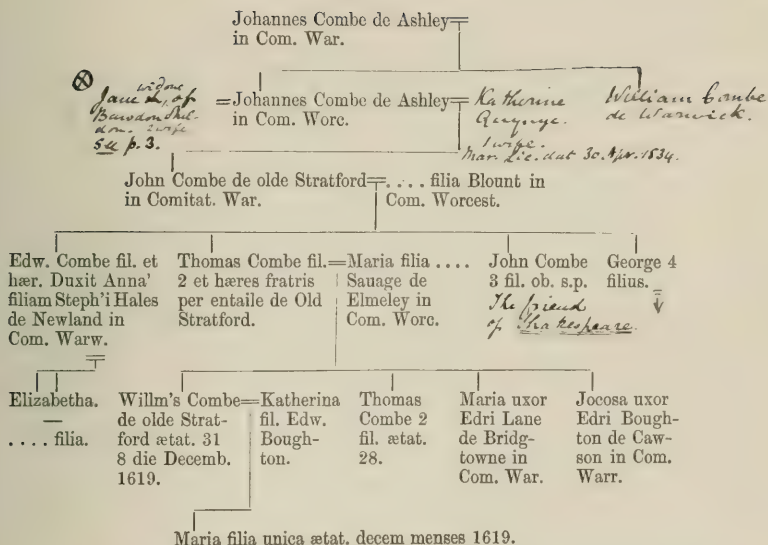 Johannes Combe de Ashley
in Com. War.
widow
Jane of
Bawdon Shel-
don. 2 wife
See p. 3.
=Johannes Combe de Ashley=
in Com. Worc.
Katherine
Quynye.
1 wife.
Mar. Lic. dat 30. Apr. 1534.
William Combe
de Warwick.
John Combe de olde Stratford=. . . . filia Blount in
in Comitat. War.
Com. Worcest.
Edw. Combe fil. et
hær. Duxit Anna'
filiam Steph'i Hales
de Newland in
Com. Warw.
Thomas Combe fil.=
2 et hæres fratris
per entaile de Old
Stratford.
Maria filia . . . .
Sauage de
Elmeley in
Com. Worc.
John Combe
3 fil. ob. s.p.
The friend
of Shakespeare.
George 4
filius.
Elizabetha.
—
. . . . filia.
Willm's Combe=
de olde Strat-
ford ætat. 31
8 die Decemb.
1619.
Katherina
fil. Edw.
Bough-
ton.
Thomas
Combe 2
fil. ætat.
28.
Maria uxor
Edri Lane
de Bridg-
towne in
Com. War.
Jocosa uxor
Edri Bough-
ton de Caw-
son in Com.
Warr.
Maria filia unica ætat. decem menses 1619.